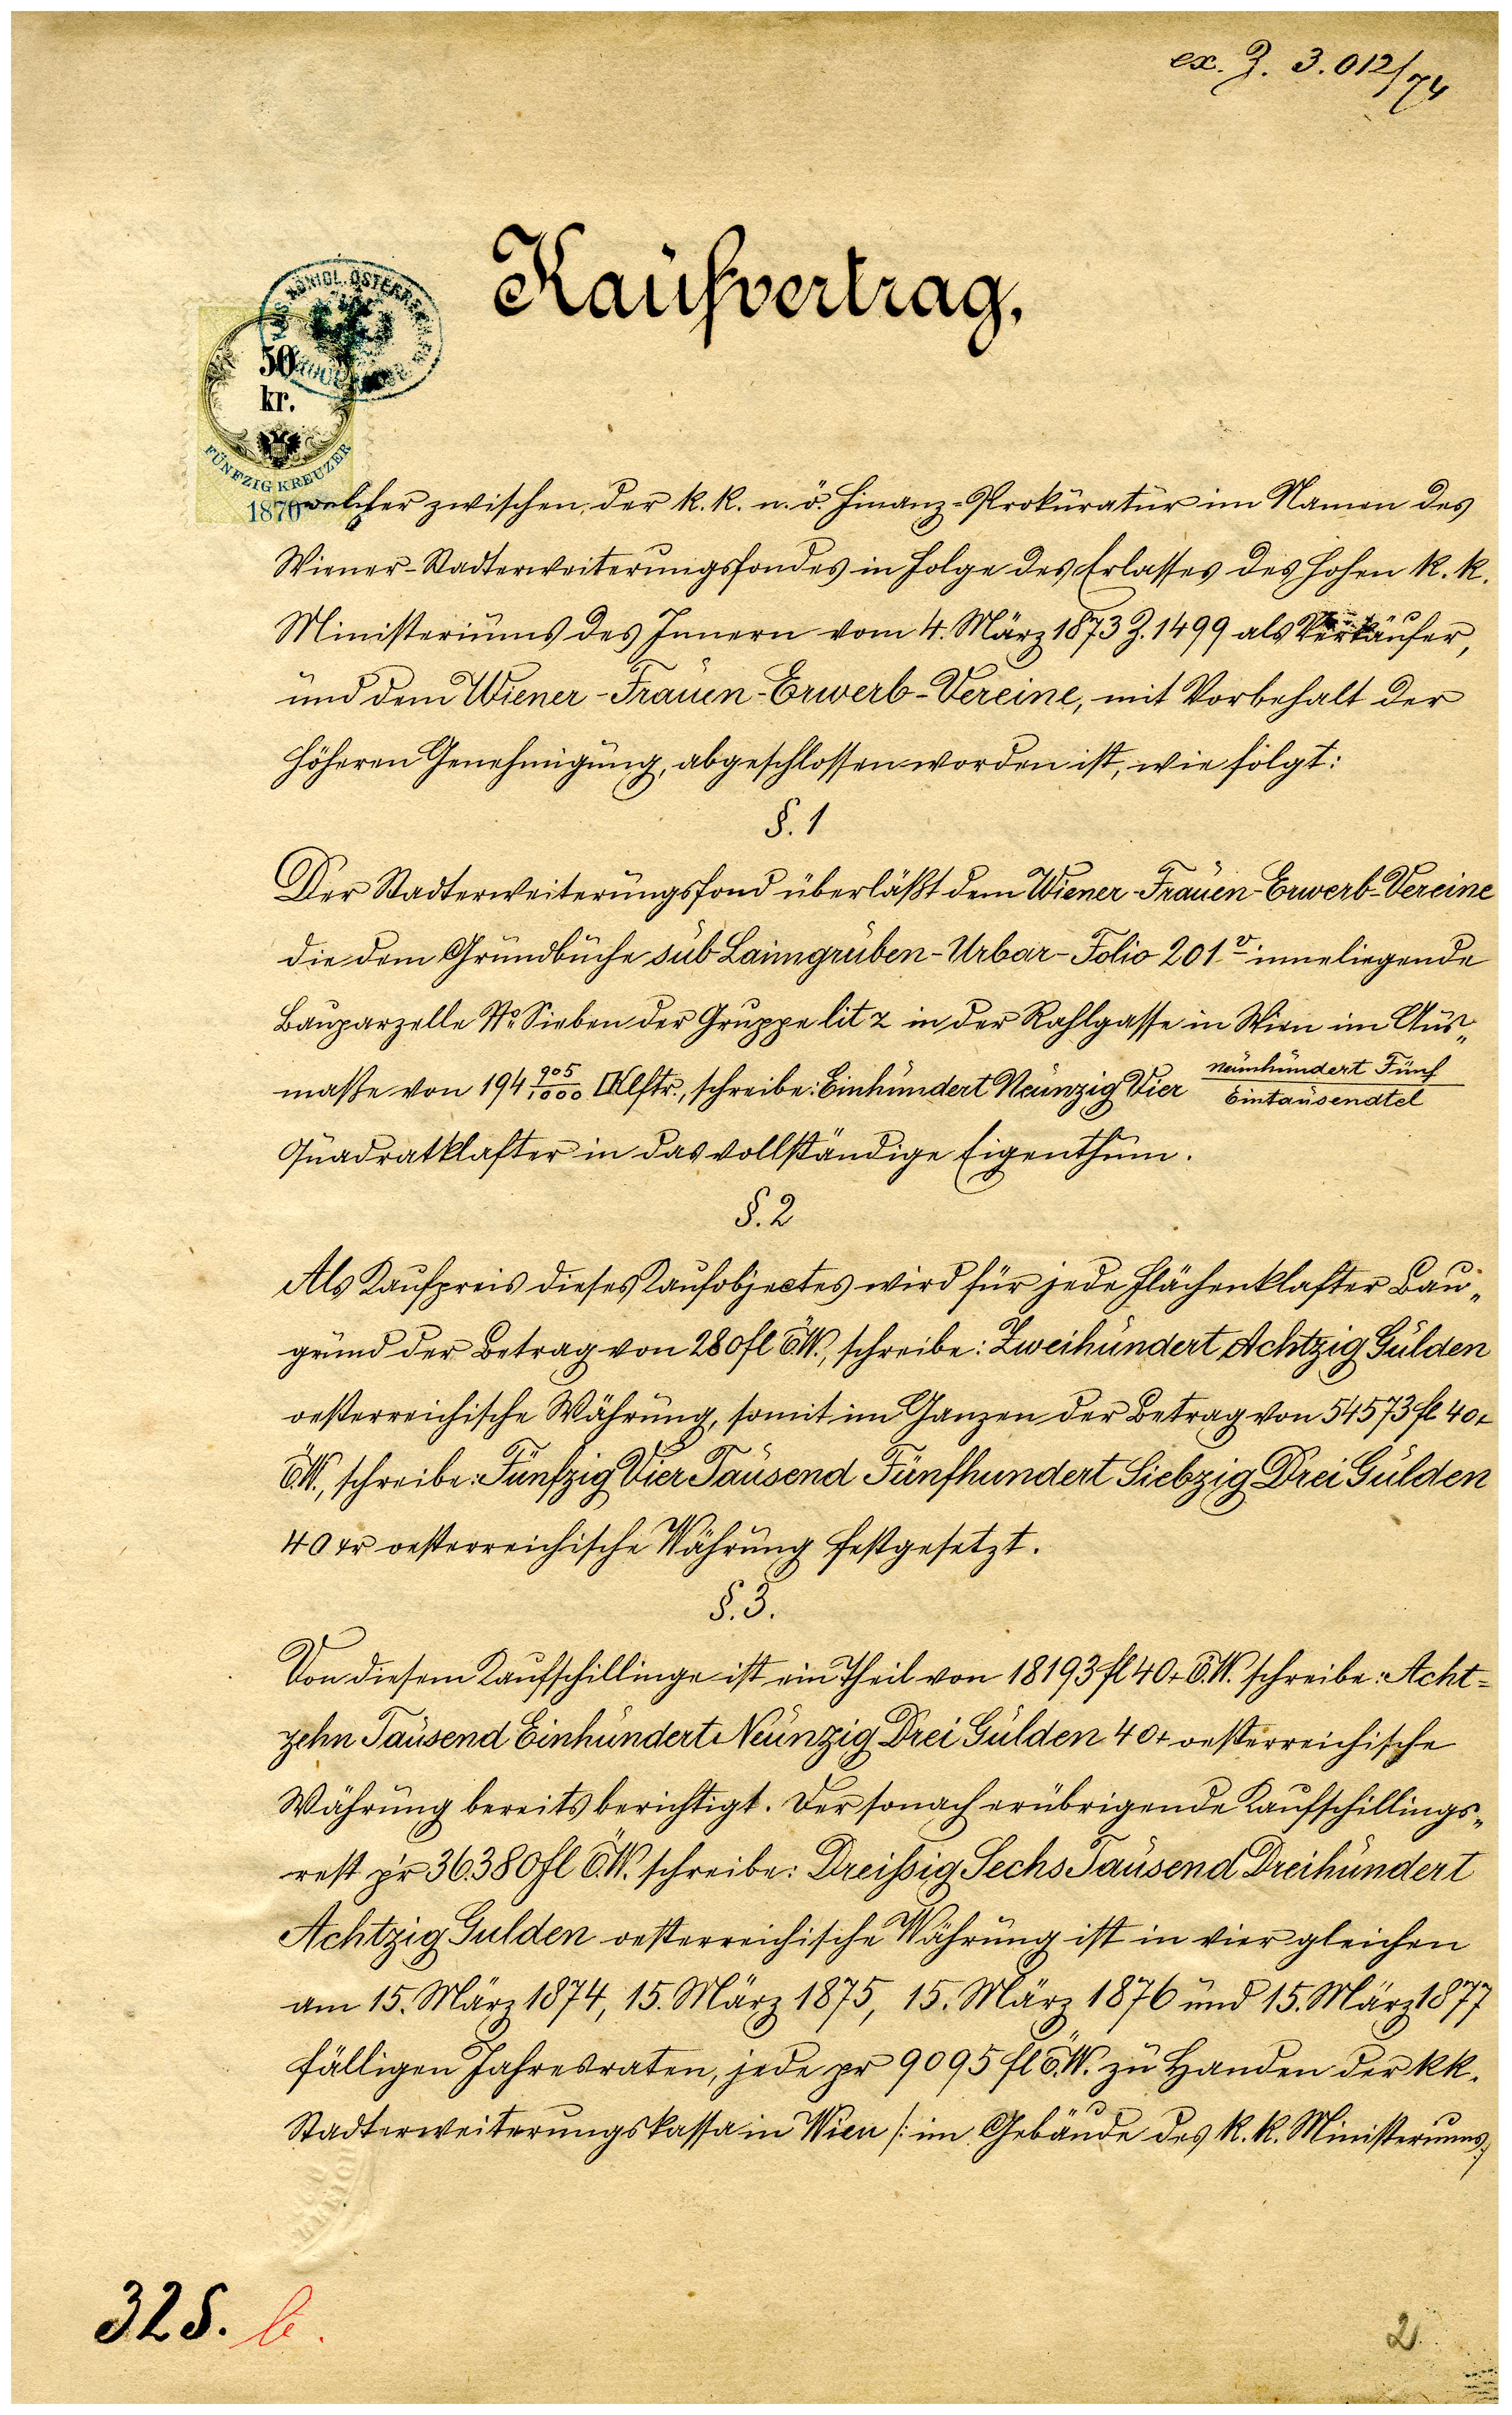 ex. Z. 3.012/74
Kaufvertrag,
KAIS. KÖNIGL. ÖSTERREICH
50
kr.
FÜNFZIG KREUZER
1870
welcher zwischen der k. k. n. ö. Finanz-Prokuratur im Namen des
Wiener-Stadterweiterungsfondes in Folge des Erlasses des hohen k. k.
Ministeriums des Innern vom 4. März 1873 Z. 1499 als Verkäufer,
und dem Wiener-Frauen-Erwerb-Vereine, mit Vorbehalt der
höheren Genehmigung, abgeschlossen worden ist, wie folgt:
§. 1
Der Stadterweiterungsfond überläßt dem Wiener-Frauen-Erwerb-Vereine
die dem Grundbuche sub Laimgruben-Urbar-Folio 201 v inneliegende
Bauparzelle No Sieben der Gruppe lit z in der Rahlgasse in Wien im Aus„
maße von 194 905/1000 □Klftr., schreibe: Einhundert Neunzig Vier neunhundert Fünf/Eintausendtel
Quadratklafter in das vollständige Eigenthum.
§. 2
Als Kaufpreis dieses Kaufobjectes wird für jede Flächenklafter Bau„
grund der Betrag von 280 fl ÖW., schreibe: Zweihundert Achtzig Gulden
oesterreichische Währung, somit im Ganzen der Betrag von 54573 fl 40 x
ÖW., schreibe: Fünfzig Vier Tausend Fünfhundert Siebzig Drei Gulden
40 xr oesterreichische Währung festgesetzt.
§. 3.
Von diesem Kaufschillinge ist ein Theil von 18193 fl 40 x Ö.W. schreibe: Acht=
zehn Tausend Einhundert Neunzig Drei Gulden 40 x oesterreichische
Währung bereits berichtigt. Der sonach erübrigende Kaufschillings„
rest pr 36.380 fl Ö.W. schreibe: Dreißig Sechs Tausend Dreihundert
Achtzig Gulden oesterreichische Währung ist in vier gleichen
am 15. März 1874, 15. März 1875, 15. März 1876 und 15. März 1877
fälligen Jahresraten, jede pr 9095 fl Ö.W. zu Handen der kk.
Stadterweiterungskassa in Wien /: im Gebäude des k. k. Ministeriums
325. b.
2